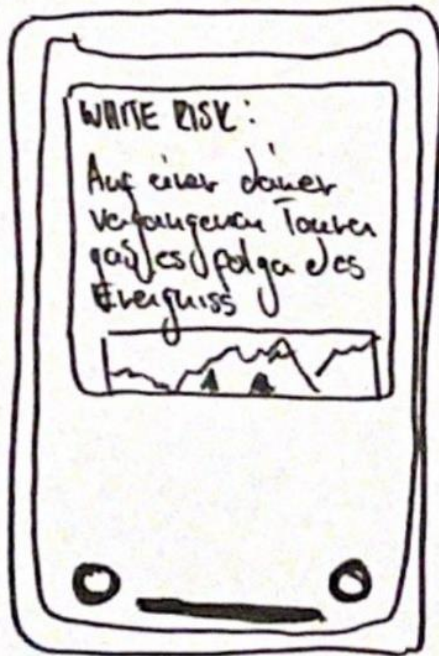 WHITE RISK:
Auf einer deiner
vergangenen Touren
gab es folgendes
Ereigniss